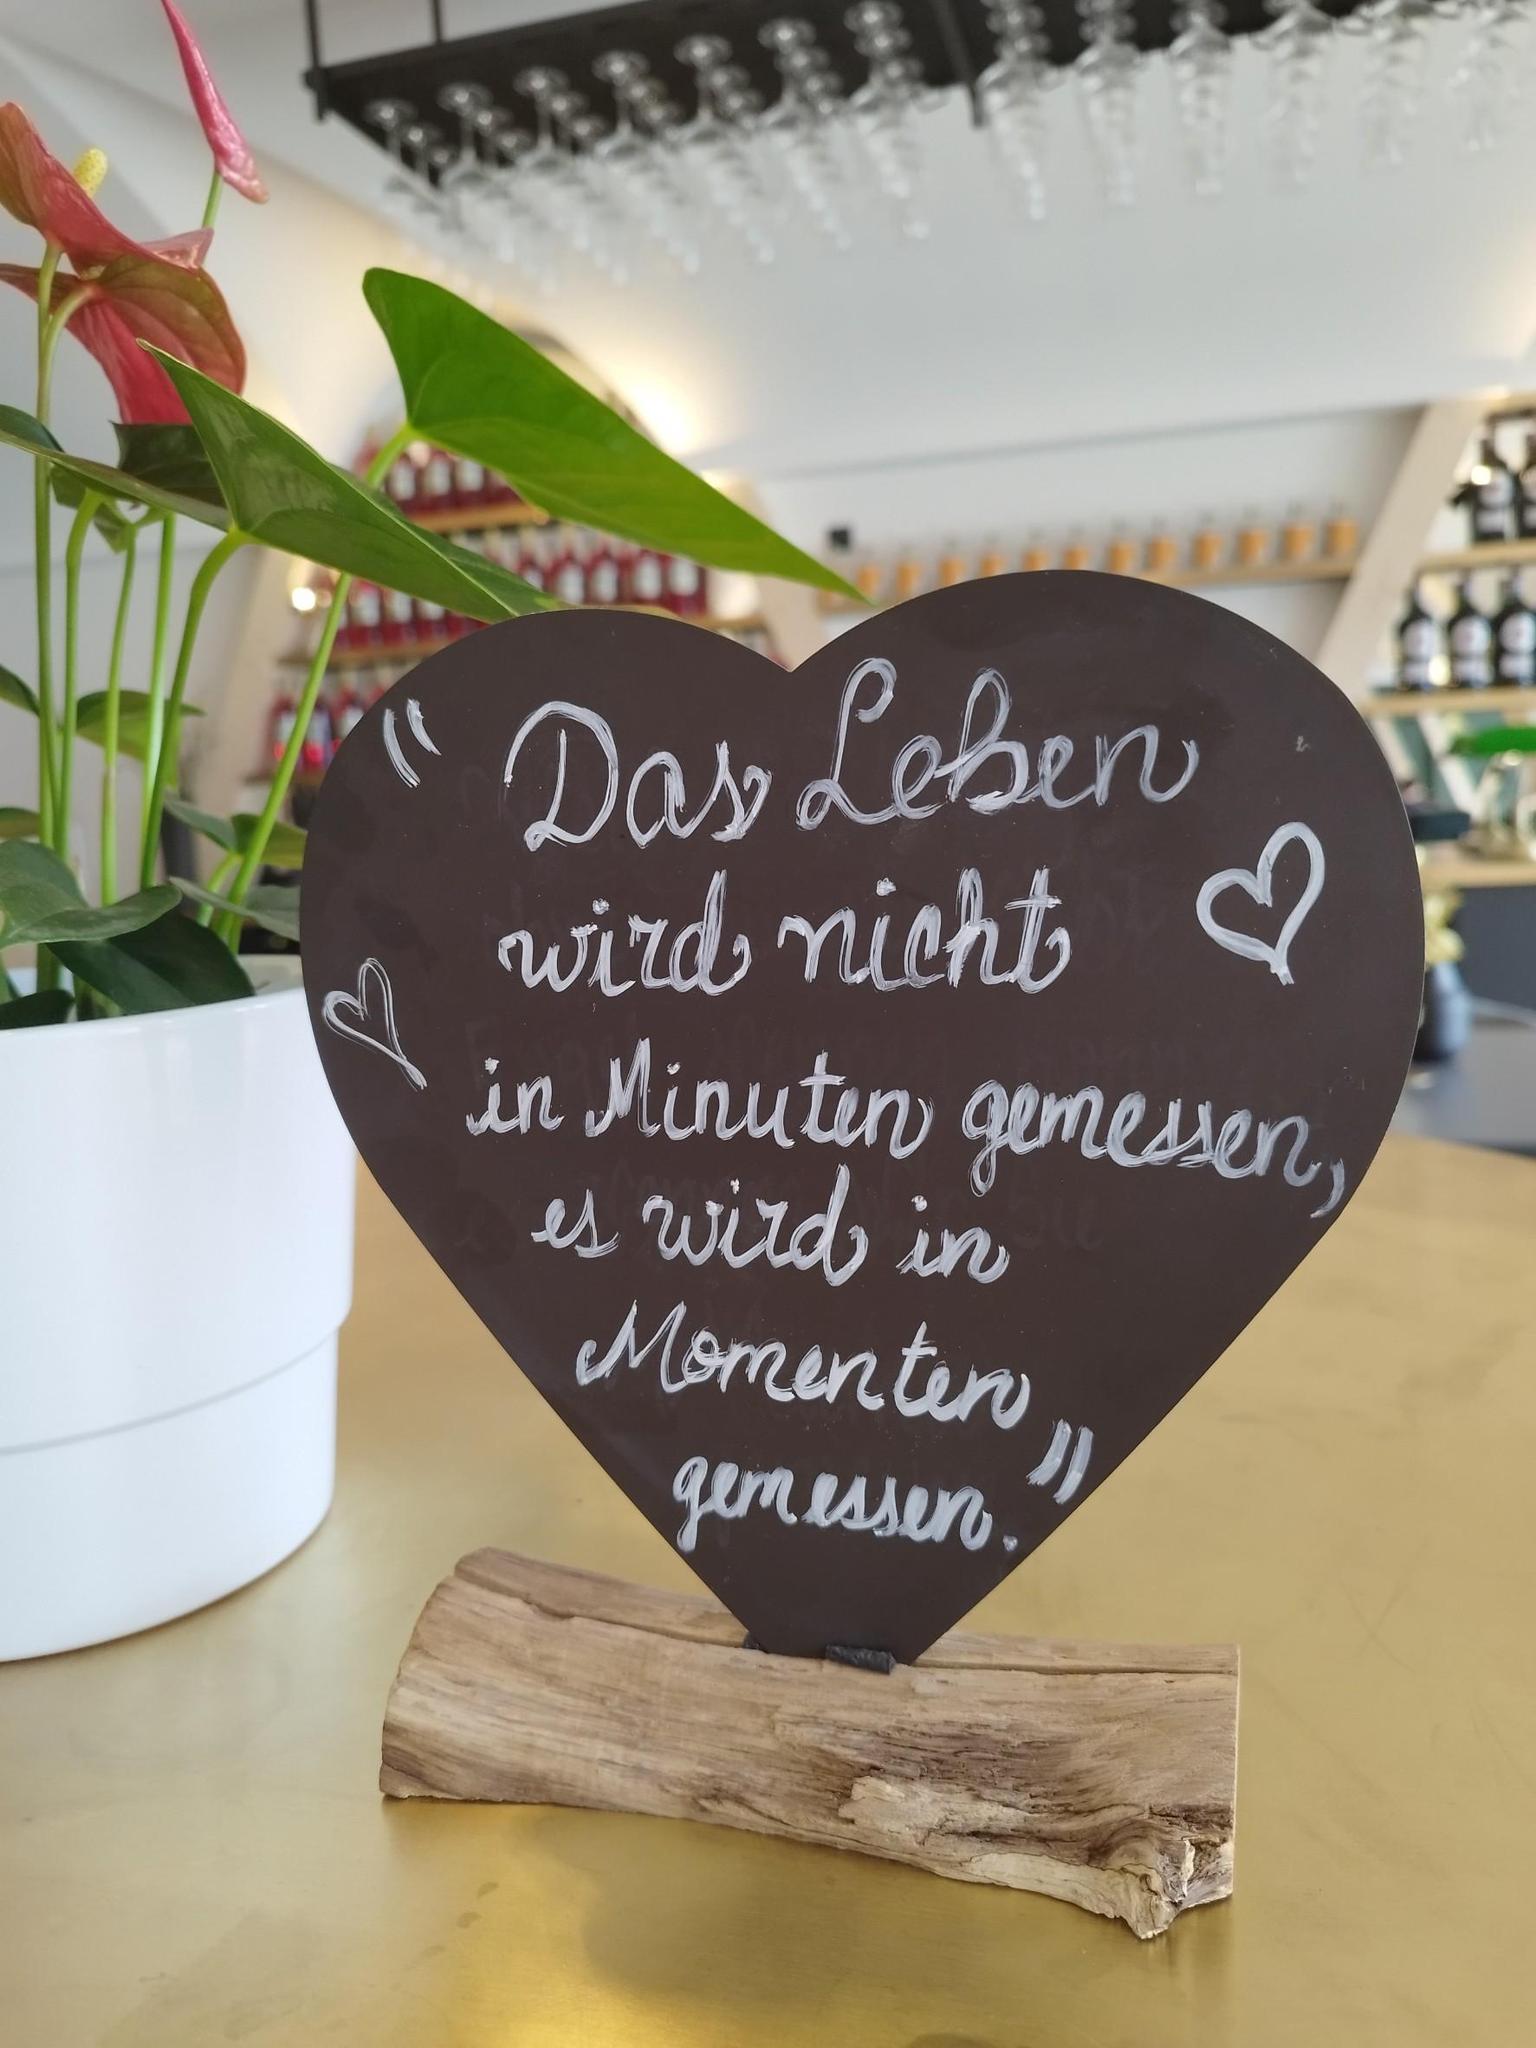 "Das Leben
wird nicht
in Minuten gemessen,
es wird in
Momenten
gemessen."